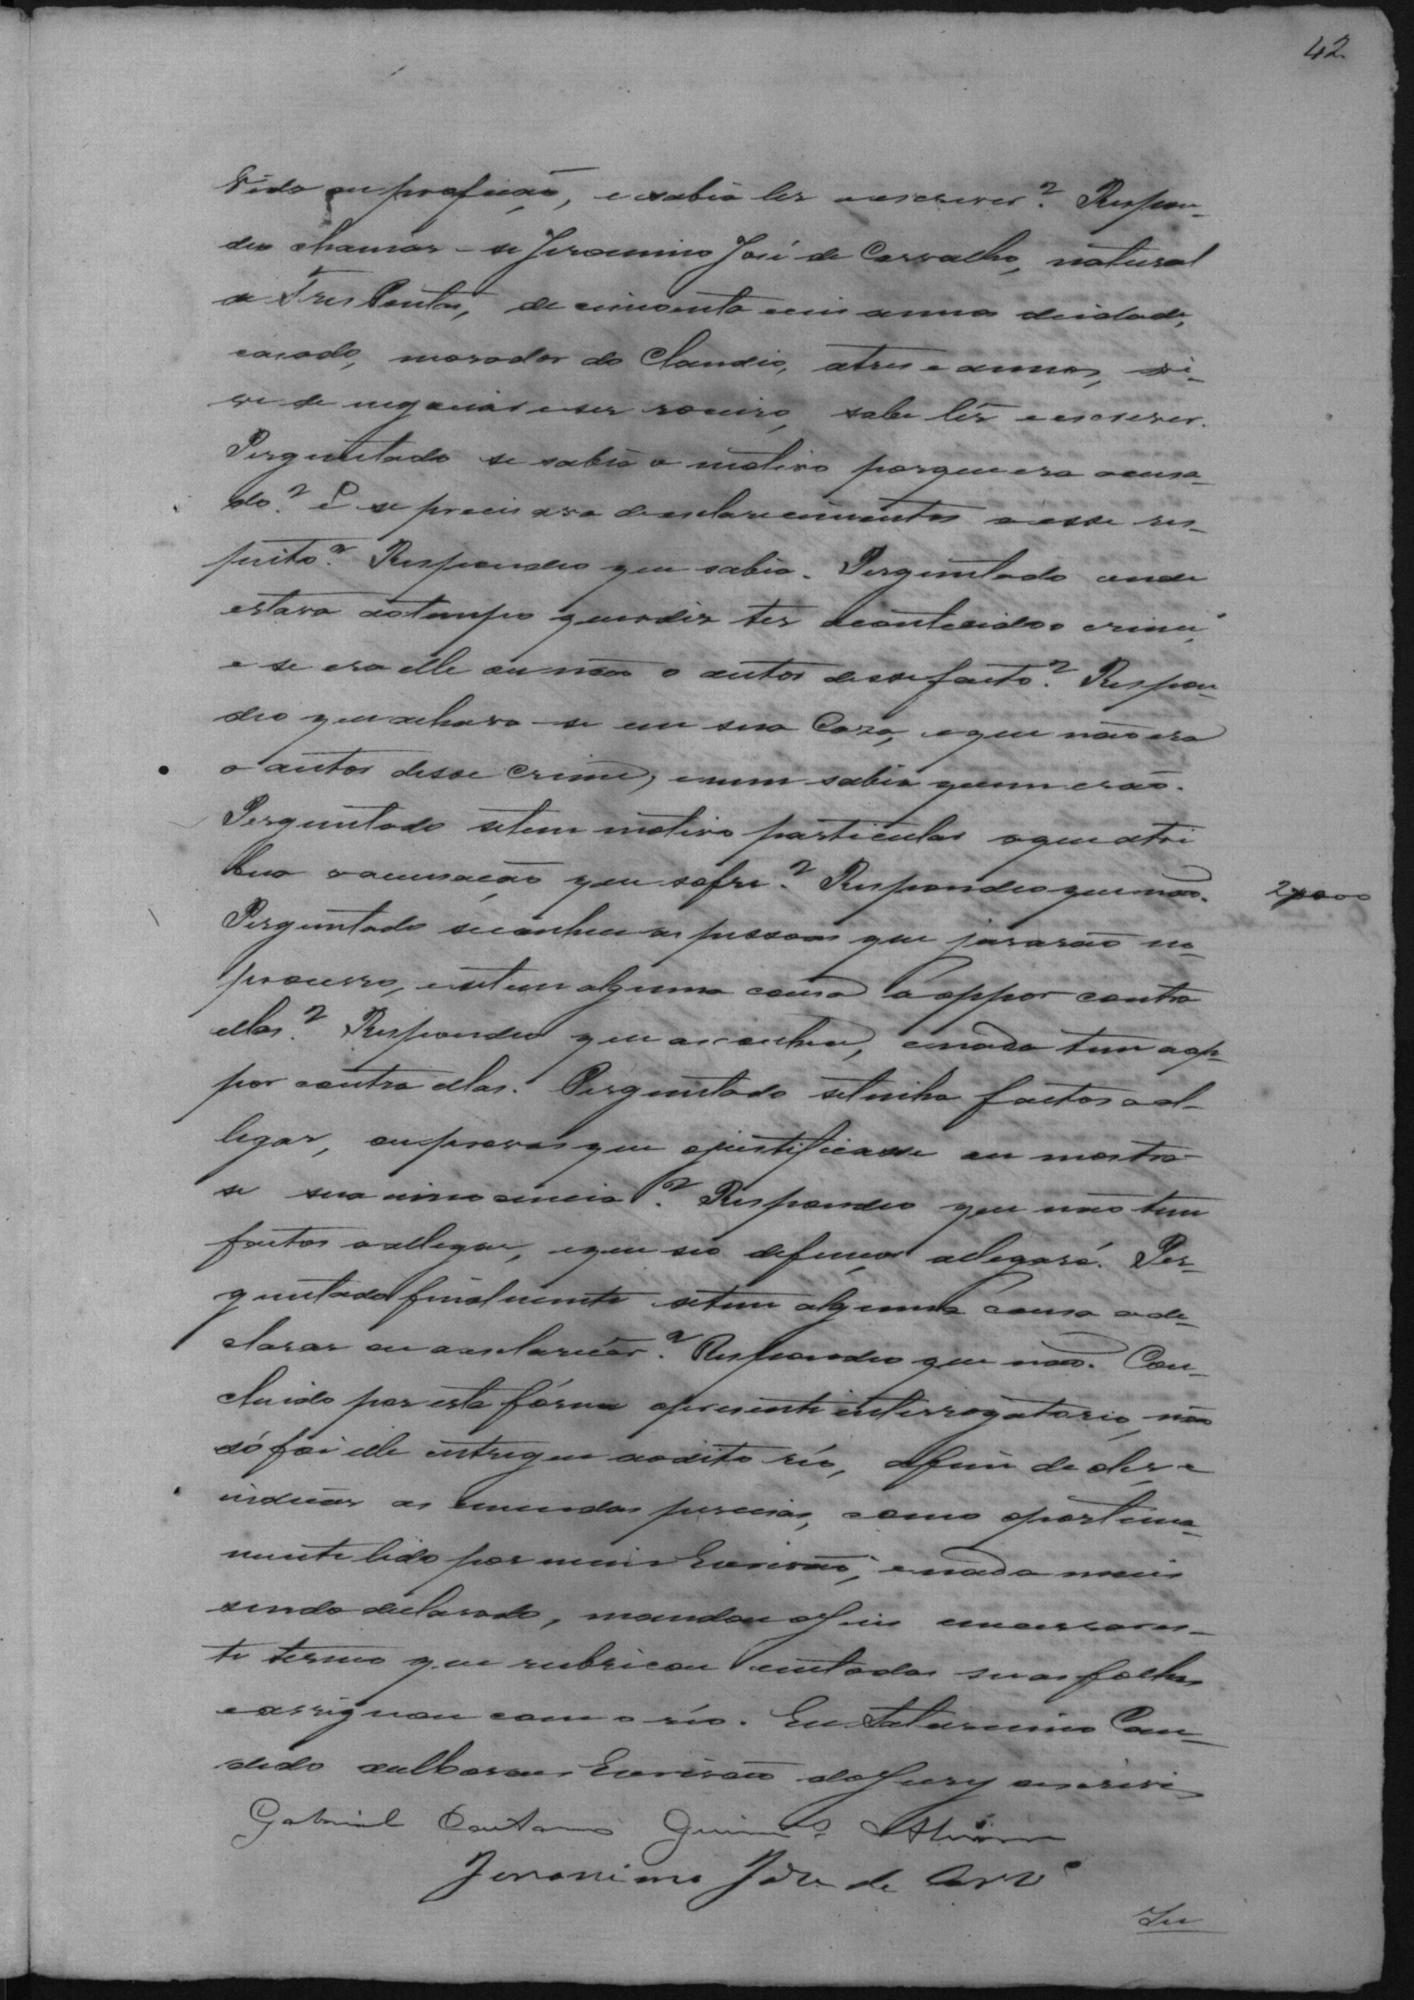 42
vida ou profição, e sabia ler e escrever? Respon-
deo chamar-se Jeronimo José de Carvalho, natural
de Tres Pontas, de cincoenta e seis annos de idade,
casado, morador do Claudio, a tres annos, vi-
ve de negocios e ser roceiro, sabe lêr e escrever.
Perguntado se sabia o motivo porque era acusa-
do? E se precisava de esclarecimentos a esse res-
peito? Respondeo que sabia. Perguntado onde
estava ao tempo que se diz ter acontecido o crime,
e se era elle ou não o autor desse facto? Respon-
deo que achava-se em sua Caza, e que não era
o autor desse crime, e nem sabia quem erão.
Perguntado se tem motivo particular a que atri
bua a acusação que sofre? Respondeo que não.
2$000
Perguntado se conhece as pessoas que jurarão no
processo, e se tem alguma cousa a oppor contra
ellas? Respondeo que as conhece, e nada tem a op-
por contra ellas. Perguntado se tinha factos a al-
legar, ou provas que o justificasse ou mostra-
se sua innocencia? Respondeo que não tem
factos a allegar, e que seo defensor allegará. Per-
guntado finalmente se tem alguma cousa a de-
clarar ou a esclarecer? Respondeo que não. Con-
cluido por esta fórma o presente interrogatorio, não
só foi elle entregue ao dito réo, afim de o ler e
indicar as emendas precisas, como oportuna-
mente lido por mim Escrivão, e nada mais
sendo declarado, mandou o Juiz encerrar es-
te termo que rubricou em todas suas folhas
e assignou com o réo. Eu Saturnino Can-
dido Escrivão do Jury escrevi
Gabriel Caetano Guim.es
Jeronimo José de Carv.o